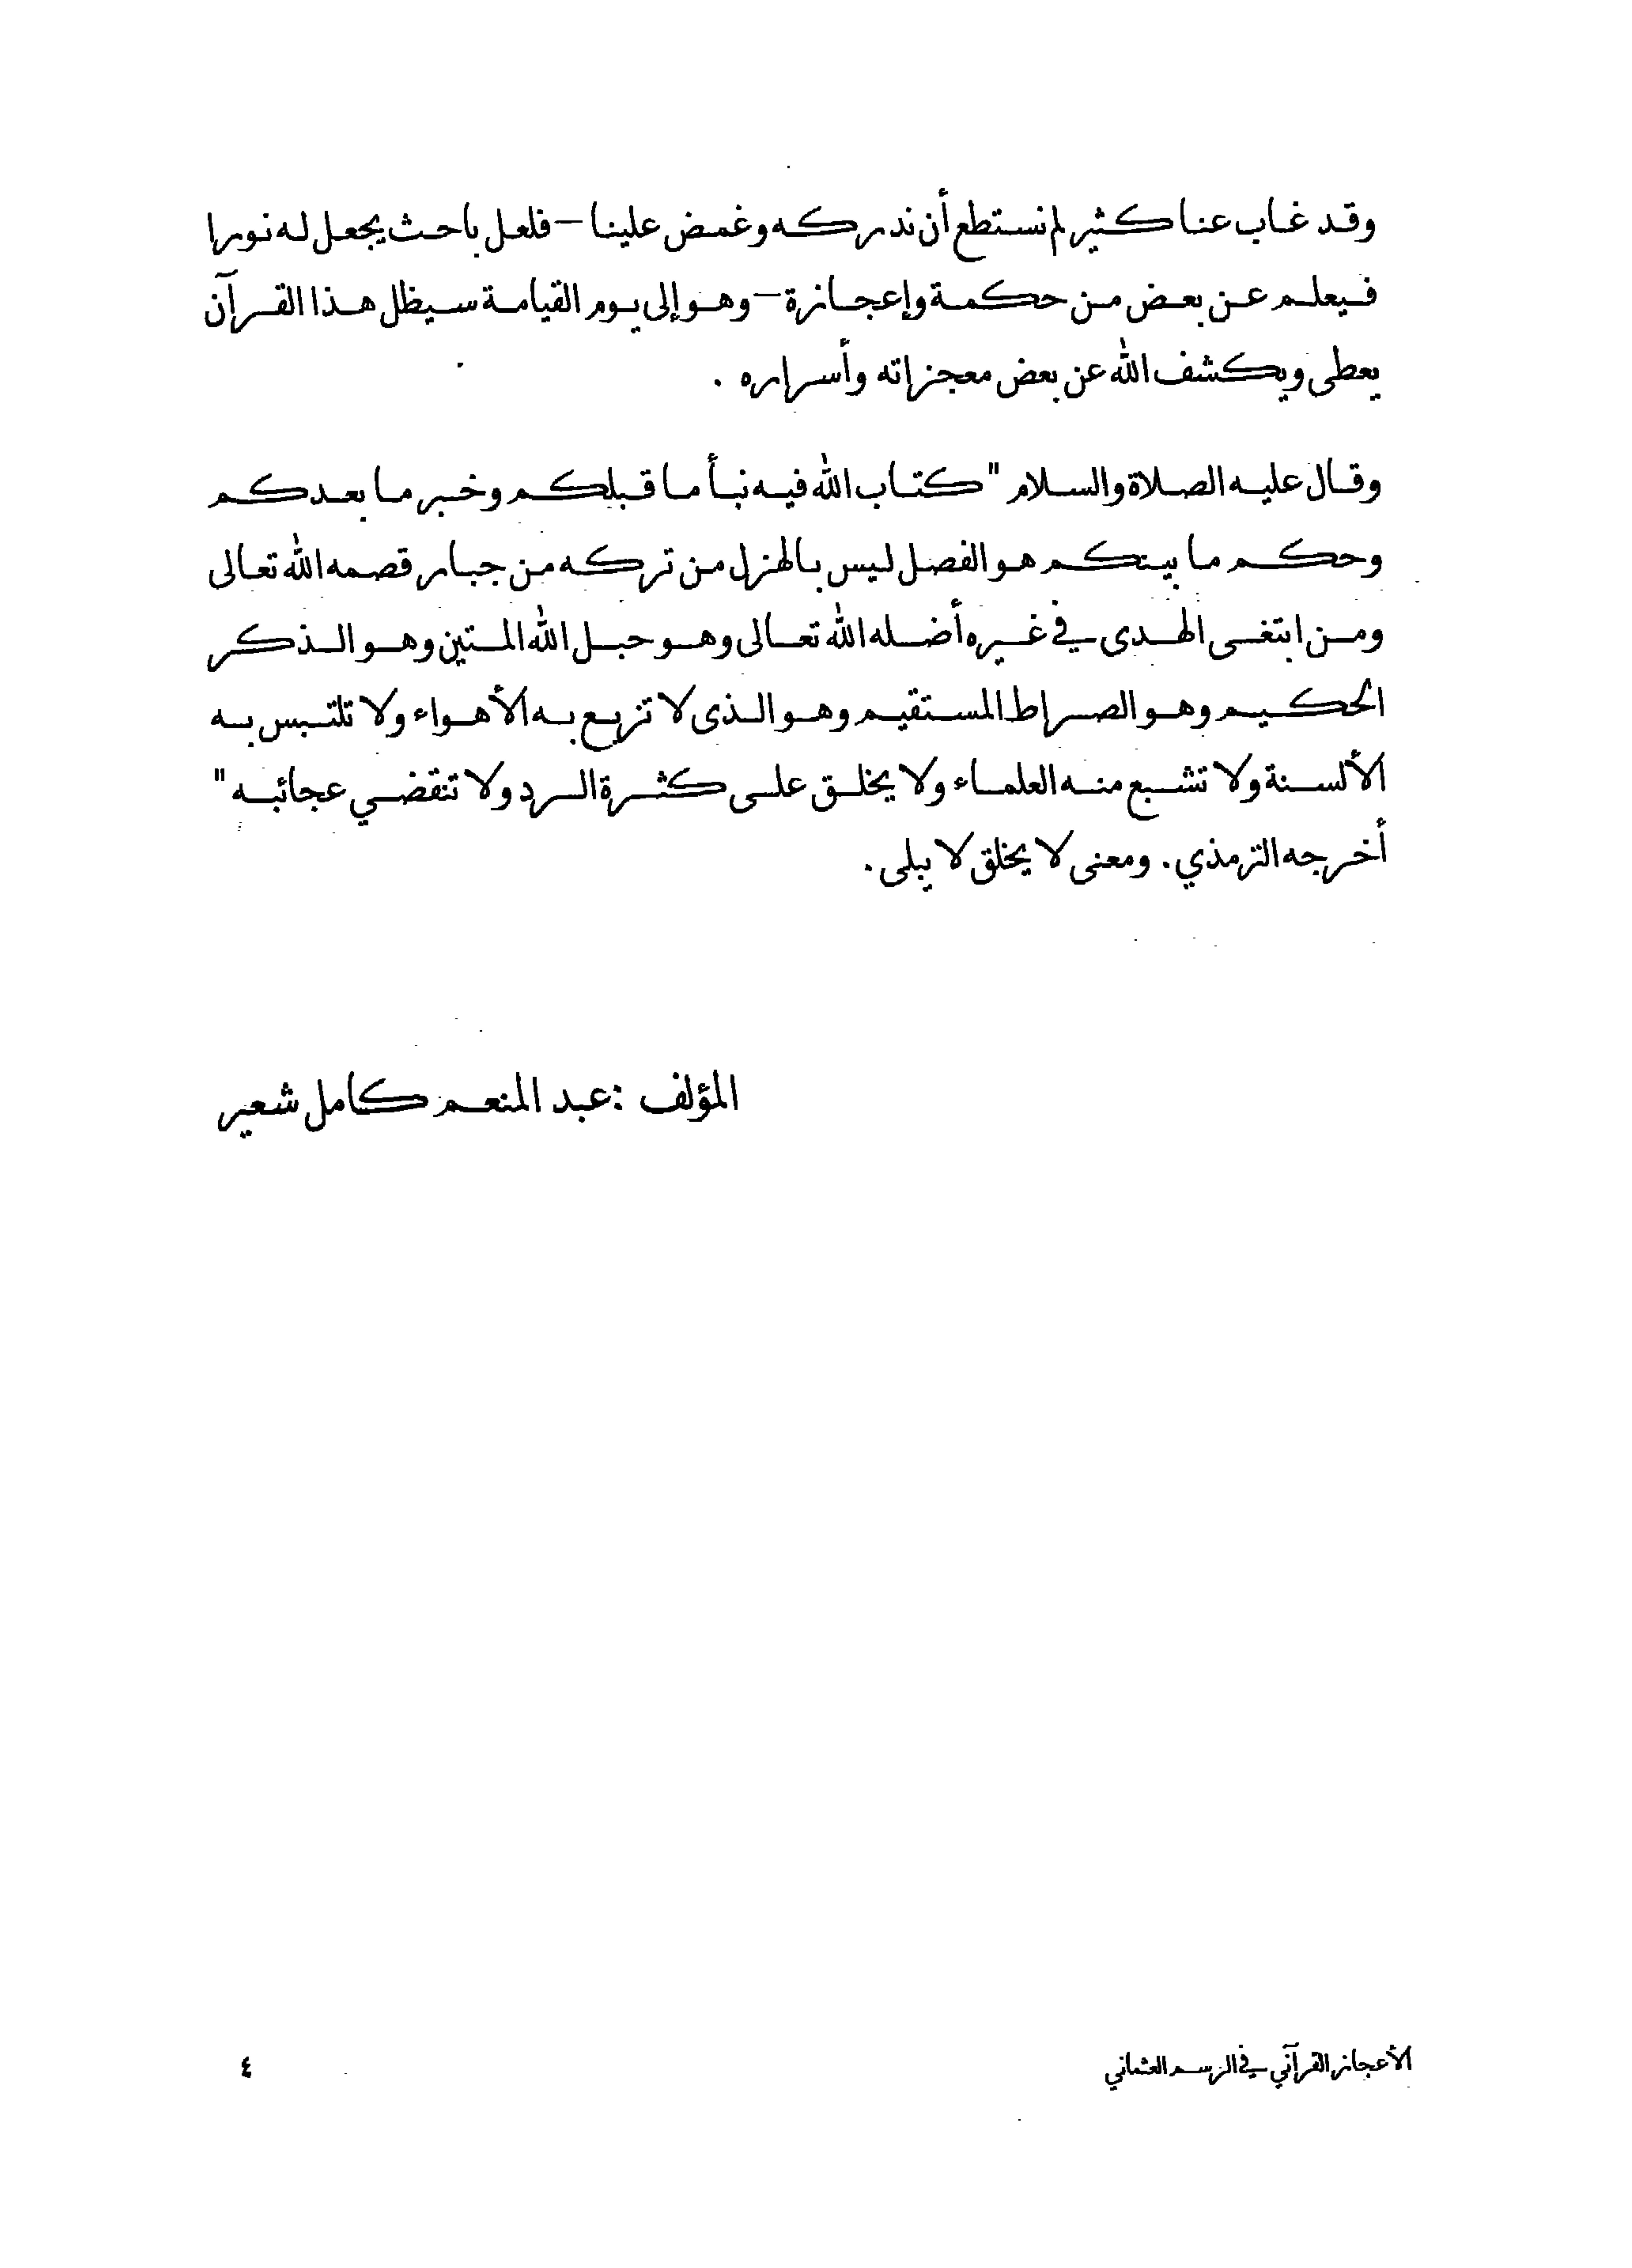 وقد غاب عنا كثير لم نستطع أن ندركه وغمض علينا – فلعل باحث يجعل له نورا
فيعلم عن بعض من حكمة وإعجازة – وهو إلى يوم القيامة سيظل هذا القرآن
يعطى ويكشف الله عن بعض معجزاته وأسراره .
وقال عليه الصلاة والسلام " كتاب الله فيه نبأ ما قبلكم وخبر ما بعدكم
وحكم ما بينكم هو الفصل ليس بالهزل من تركه من جبار قصمه الله تعالى
ومن ابتغى الهدى في غيره أضله الله تعالى وهو حبل الله المتين وهو الذكر
الحكيم وهو الصراط المستقيم وهو الذى لا تزيع به الأهواء ولا تلتبس به
الألسنة ولا تشبع منه العلماء ولا يخلق على كثرة الرد ولا تنقضي عجائبه "
أخرجه الترمذي . ومعنى لا يخلق لا يبلى .
المؤلف : عبد المنعم كامل شعير
الأعجاز القرآني في الرسم العثماني
٤